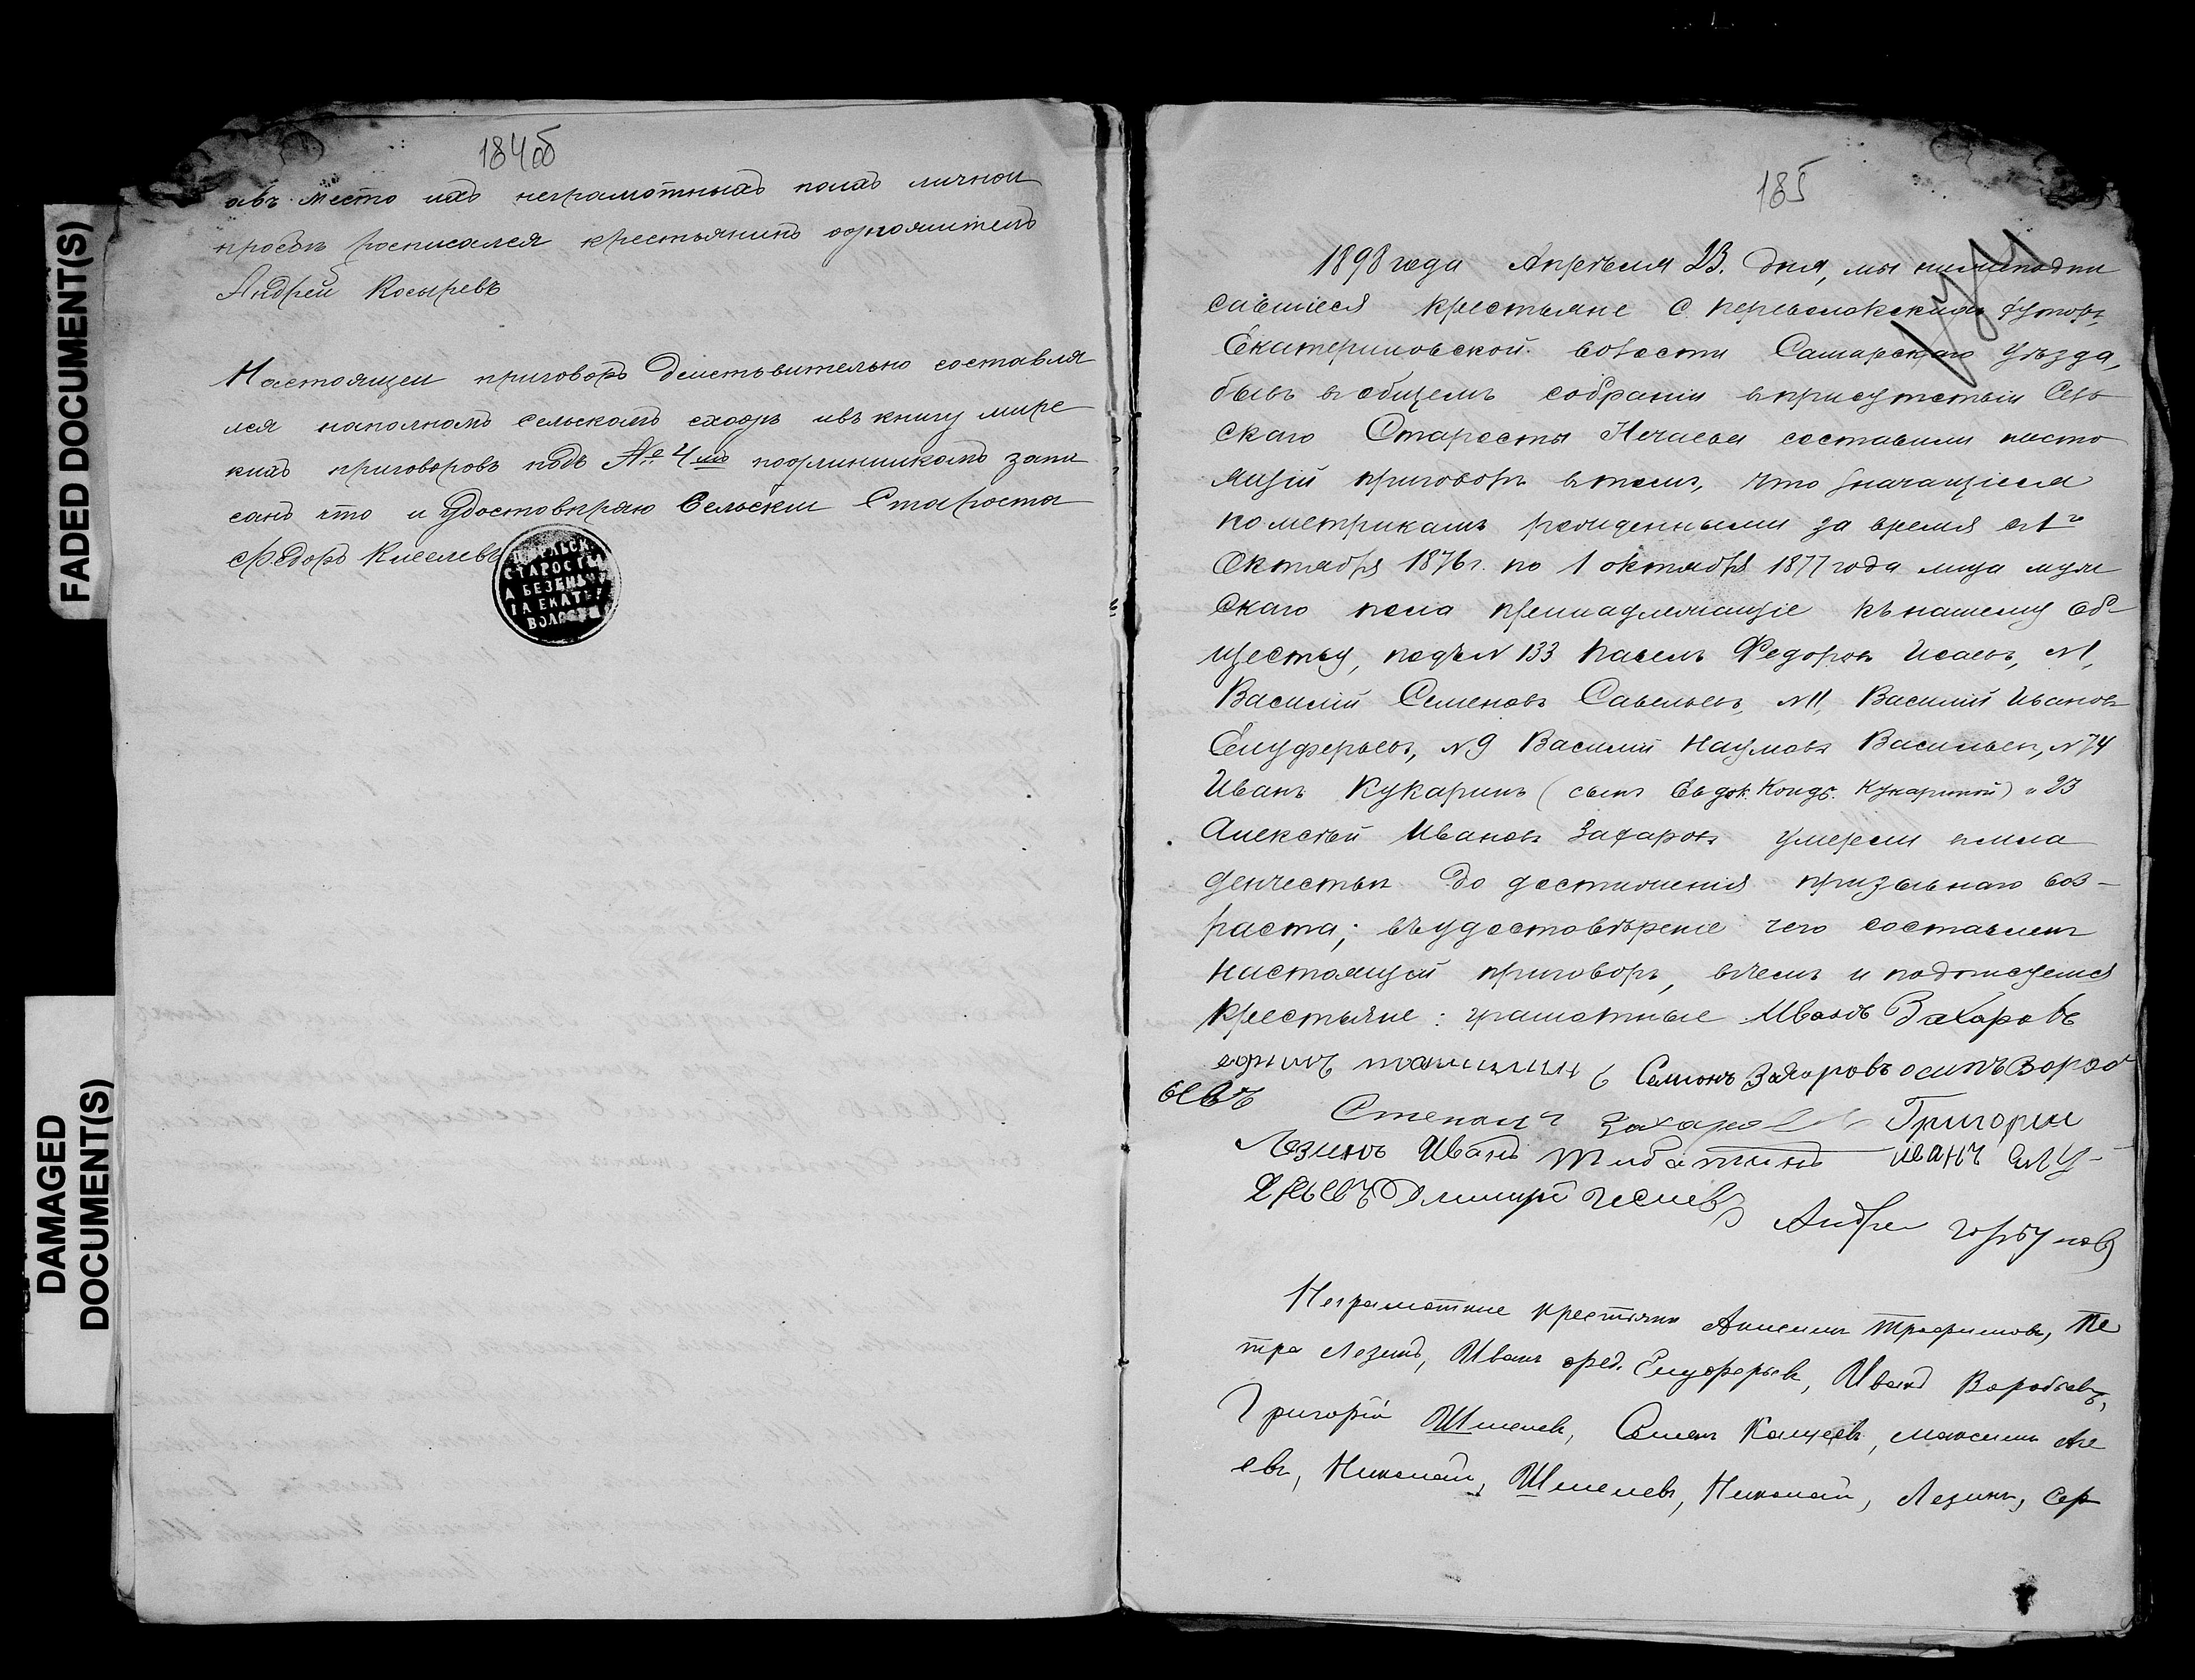 FADED DOCUMENT(S)
DAMAGED
DOCUMENT(S)
184об
авъ место ихъ неграмотныхъ поихъ личной
прозбѣ росписался крестьянинъ одножителъ
Андрей Косыревъ
Настоящей приговоръ Действительно составля
лся наполномъ сельскомъ сходѣ ивъ книгу мирс
кихъ приговоровъ подъ № 4мъ подлинникомъ запи
санъ что и Удостовѣряю Сельски Староста
Ѳедоръ Киселевъ
СТАРОСТЫ
БЕЗЕНЧУ
ЕКАТЕ
ВОЛОСТИ
185
1898 года Апрѣля 23. дня, мы нижеподпи
савшіеся крестьяне с. Переволокскихъ Хуторъ,
Екатериновской волости Самарскаго уѣзда,
бывъ въ общемъ собраніи въ присутствіи Сель
скаго Старосты Нечаева составили насто
ящій приговоръ въ томъ, что значащіеся
по метрикамъ рожденными за время съ 1го
Октября 1876 г. по 1 октября 1877 года лица муж
скаго пола принадлежащіе къ нашему об-
ществу, подъ N 133 Павелъ Федоровъ Исаевъ, N 1,
Василій Семеновъ Савельевъ, N 11, Василій Ивановъ
Елуферьевъ, N 9 Василій Наумовъ Васильевъ, N 74
Иванъ Кукаринъ (сынъ Евдок. Конд. Кукариной) и 23
Алексѣй Ивановъ Захаровъ умерли въ мла
денчествѣ до достиженія призывнаго воз-
раста; въ удостовѣреніе чего составленъ
настоящій приговоръ, въ чемъ и подписуемся
Крестьяне: грамотные Иванъ Захаровъ
Семионъ Захаровъ осипъ Вороб
ьевъ
Степанъ Захаровъ Григорий
Лезинъ Иванъ иванъ елу-
Дмитрі
Андре горбунов
Неграмотные крестьяне Трофимовъ, Пе
тръ Лезинъ, Иванъ Фед. Елуферьевъ, Иванъ Воробьевъ,
Григорій Шмелевъ, Семенъ Кащеевъ, Максимъ Аге
евъ, Николай, Шмелевъ, Николай, Лезинъ, Сер